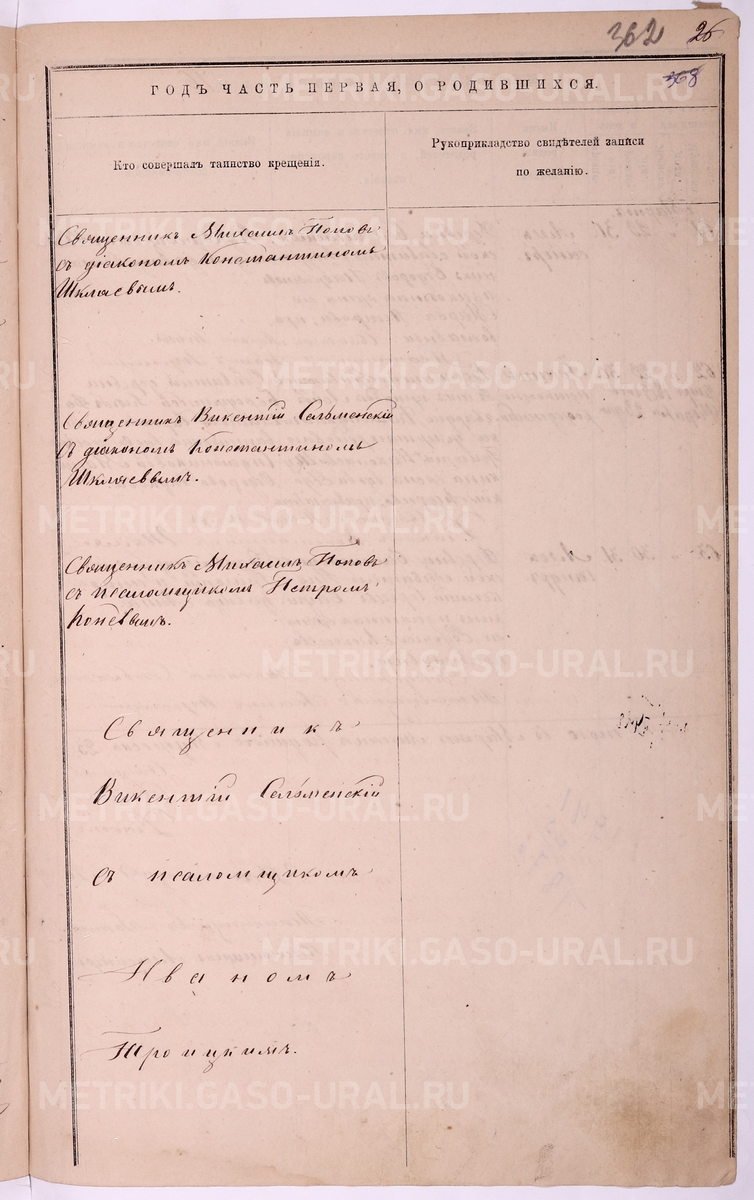 362 26
368
ГОДЪ ЧАСТЬ ПЕРВАЯ, О РОДИВШИХСЯ.
Кто совершалъ таинство крещенія.
Рукоприкладство свидѣтелей записи
по желанію.
Священникъ Михаилъ Поповъ
съ діакономъ Константиномъ
Шкляевымъ.
Священникъ Викентій Сельменскій
съ діакономъ Константиномъ
Шкляевымъ.
Священникъ Михаилъ Поповъ
съ псаломщикомъ Петромъ
Коневымъ.
Священникъ
Викентій Сельменскій
съ псаломщикомъ
Иваномъ
Троицкимъ.
METRIKI.GASO-URAL.RU